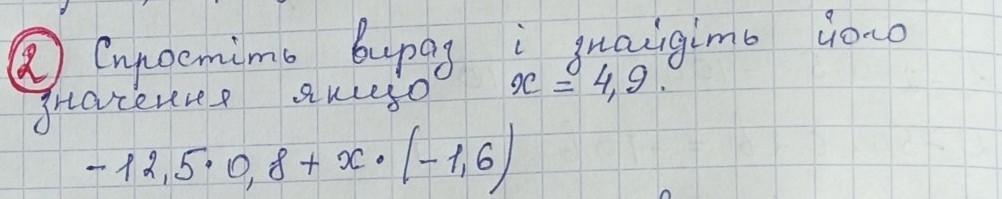 2 Спростіть вираз і знайдіть його
значення якщо x = 4,9.
-12,5·0,8+x·(-1,6)